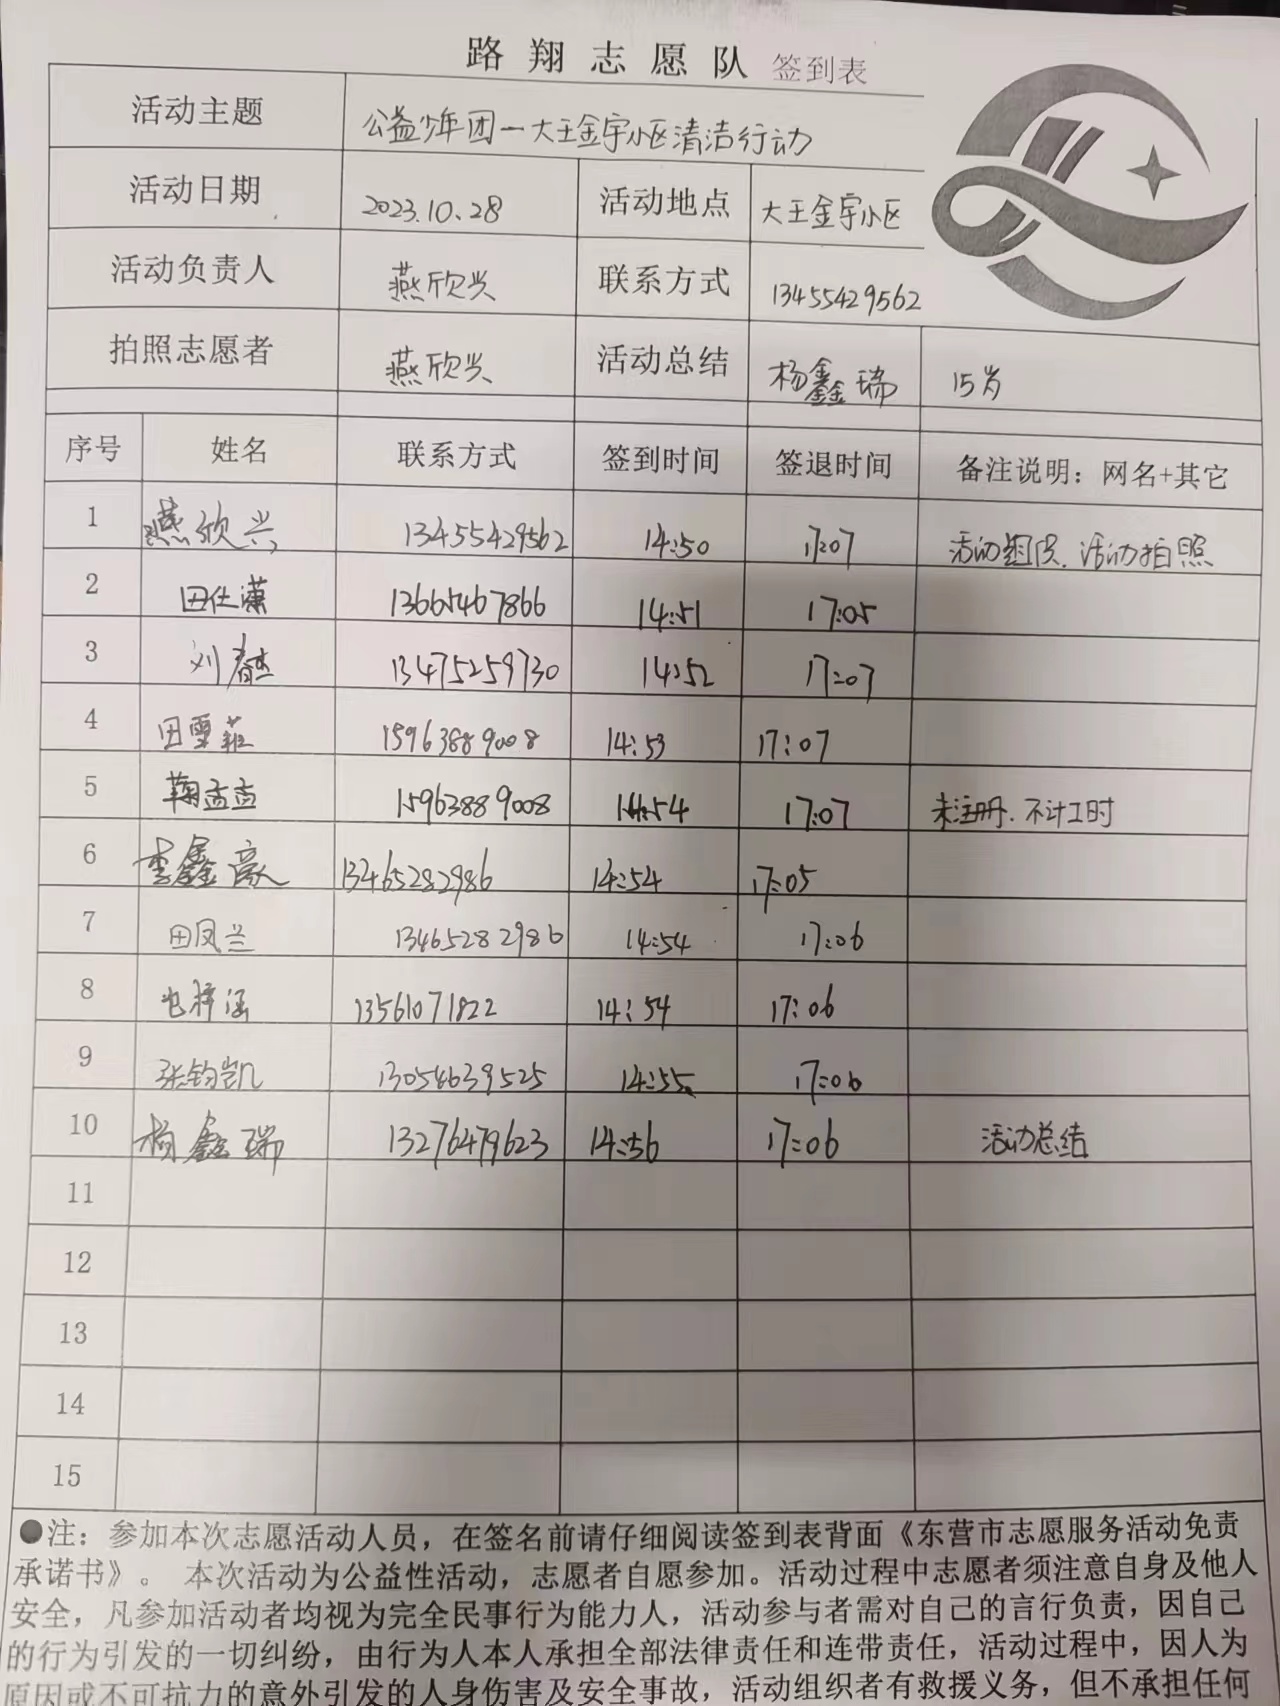 路翔志愿队 签到表
活动主题 公益少年团一大王金宇小区清洁行动
活动日期 2023.10.28 活动地点 大王金宇小区
活动负责人 燕欣兴 联系方式 13455429562
拍照志愿者 燕欣兴 活动总结 杨鑫瑞 15岁
序号 姓名 联系方式 签到时间 签退时间 备注说明：网名+其它
1 燕欣兴 13455429562 14:50 17:07 活动组织、活动拍照
2 田仕潇 13665467866 14:51 17:05
3 刘春杰 13475259730 14:52 17:07
4 田雪菲 15963889008 14:53 17:07
5 鞠孟孟 15963889008 14:54 17:07 未注册.不计工时
6 李鑫豪 13465282986 14:54 17:05
7 田凤兰 13465282986 14:54 17:06
8 梓涵 13561071822 14:54 17:06
9 张钧凯 13054639525 14:55 17:06
10 杨鑫瑞 13276479623 14:56 17:06 活动总结
11
12
13
14
15
●注：参加本次志愿活动人员，在签名前请仔细阅读签到表背面《东营市志愿服务活动免责
承诺书》。 本次活动为公益性活动，志愿者自愿参加。活动过程中志愿者须注意自身及他人
安全，凡参加活动者均视为完全民事行为能力人，活动参与者需对自己的言行负责，因自己
的行为引发的一切纠纷，由行为人本人承担全部法律责任和连带责任，活动过程中，因人为
原因或不可抗力的意外引发的人身伤害及安全事故，活动组织者有救援义务，但不承担任何